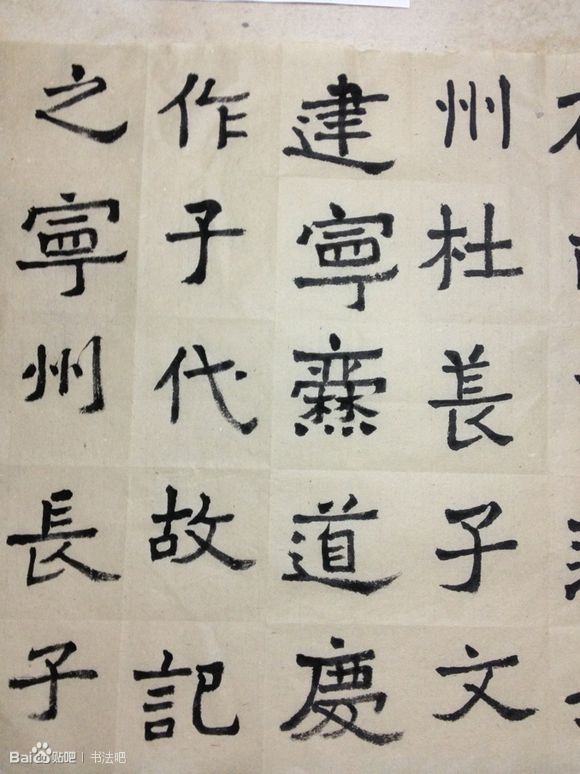 州杜長子文
建寧爨道慶
作子代故記
之寧州長子
Bai 贴吧 | 书法吧